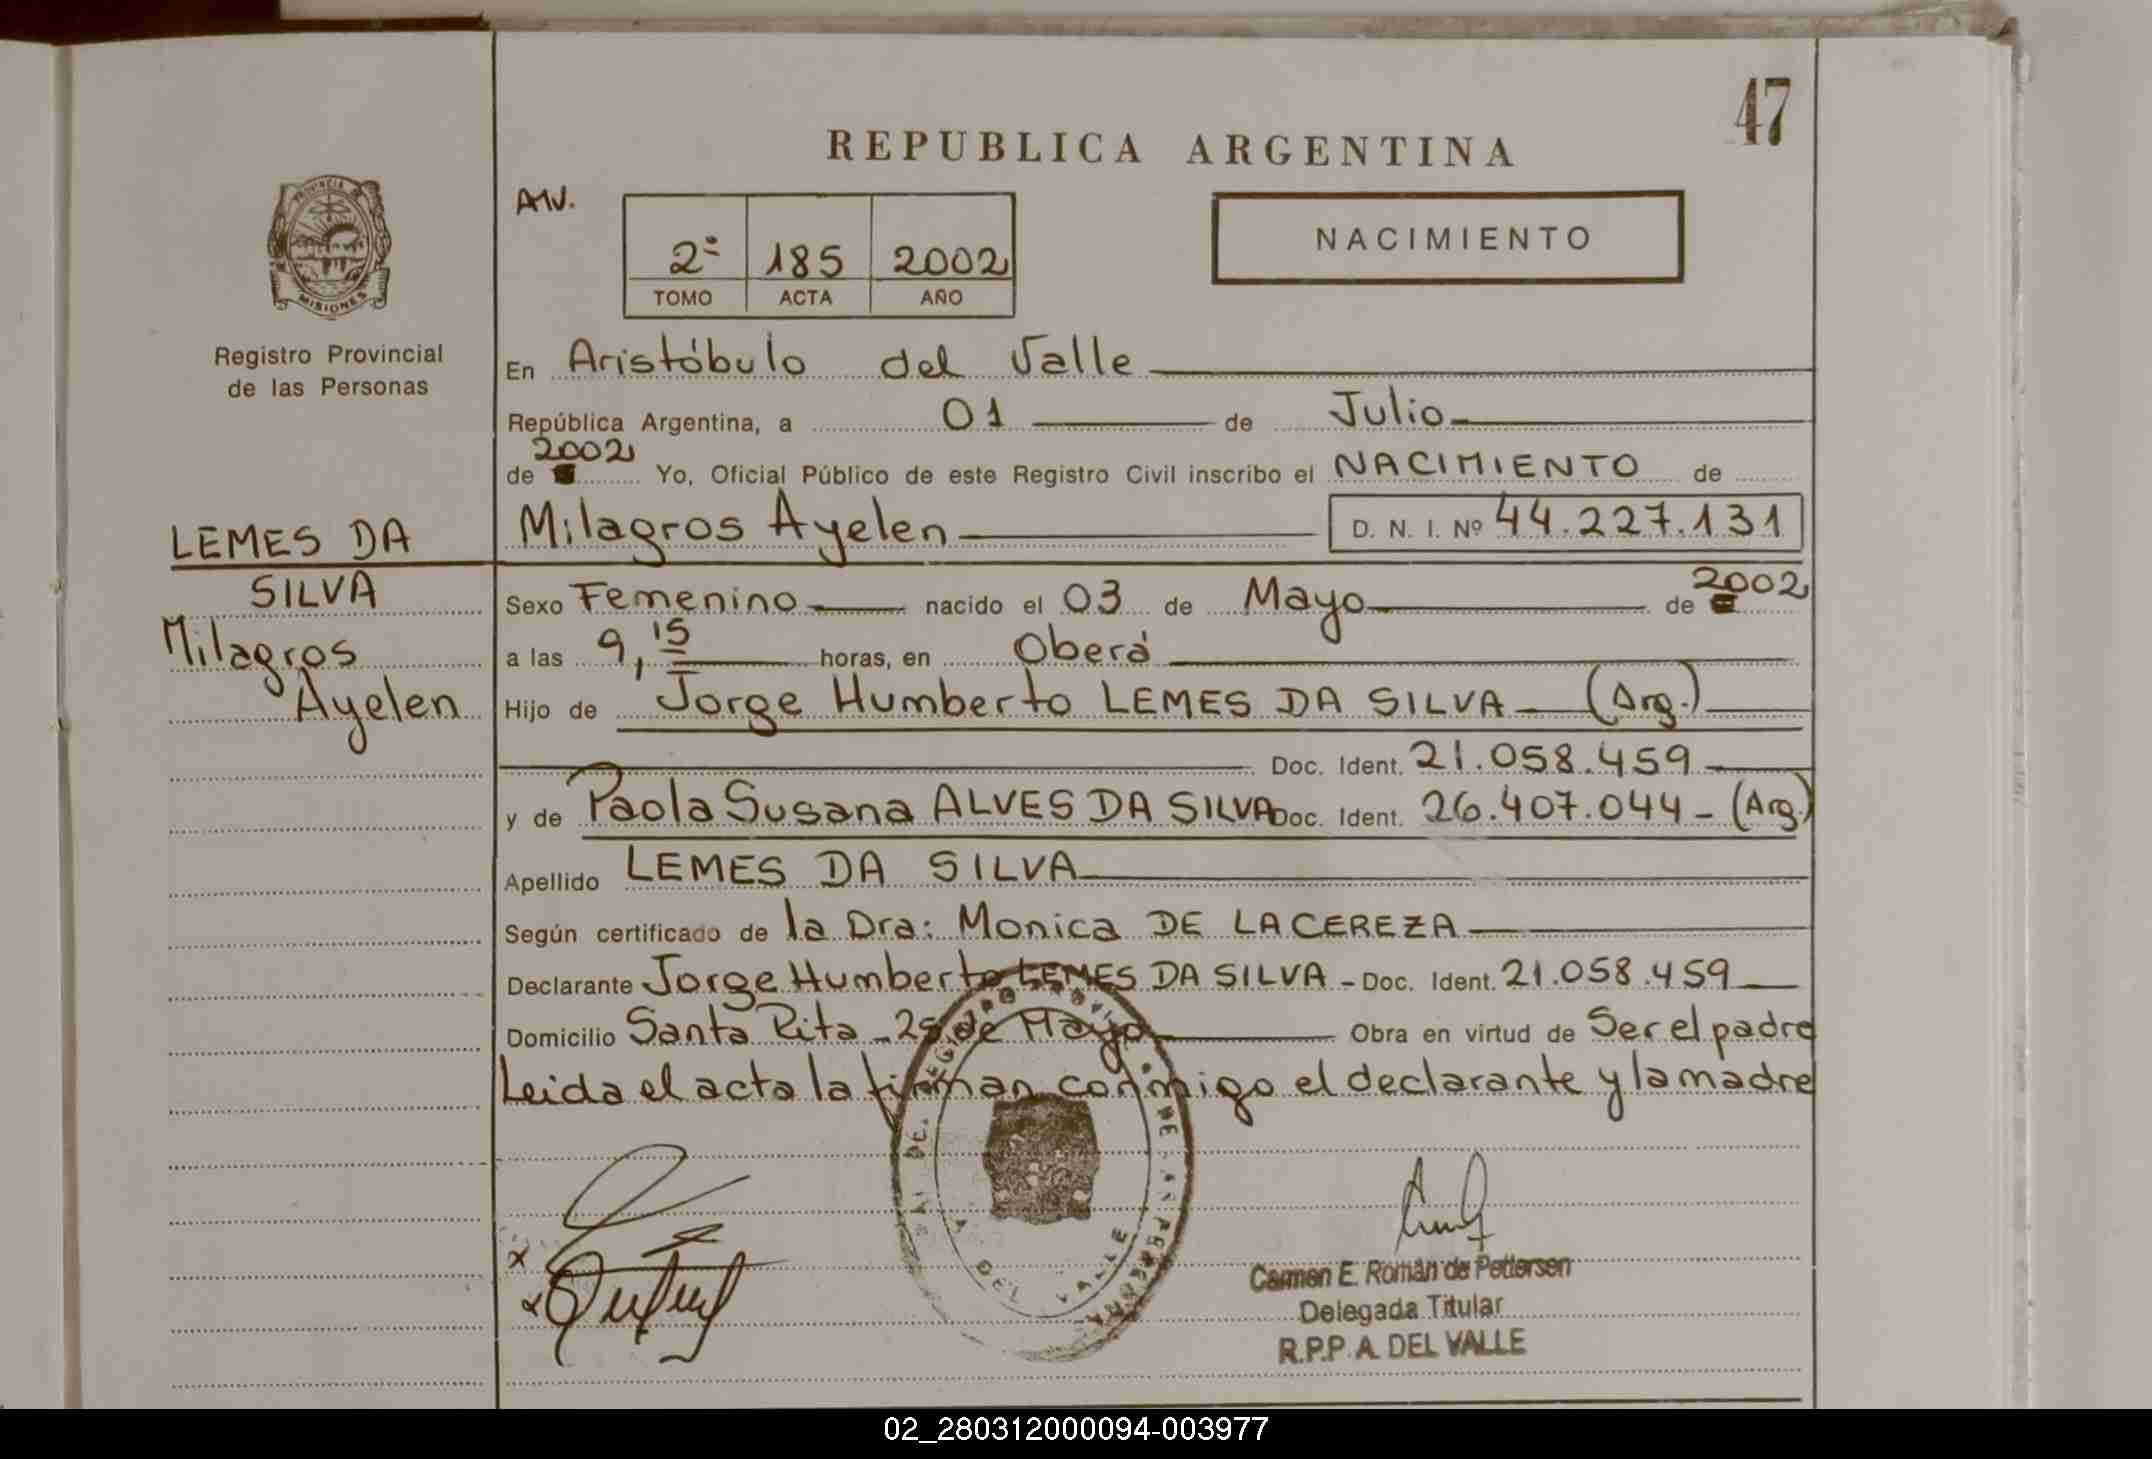 47
REPUBLICA ARGENTINA
PROVINCIA DE
MISIONES
Registro Provincial
de las Personas
2º 185 2002
TOMO ACTA AÑO
NACIMIENTO
En Aristóbulo del Valle
República Argentina, a 01 de Julio
de 2002 Yo, Oficial Público de este Registro Civil inscribo el NACIMIENTO de
Milagros Ayelen D. N. I. Nº 44.227.131
LEMES DA
SILVA
Milagros
Ayelen
Sexo Femenino nacido el 03 de Mayo de 2002
a las 9,15 horas, en Oberá
Hijo de Jorge Humberto LEMES DA SILVA (Arg.)
Doc. Ident. 21.058.459
y de Paola Susana ALVES DA SILVA Doc. Ident. 26.407.044 - (Arg.)
Apellido LEMES DA SILVA
Según certificado de la Dra: Monica DE LA CEREZA
Declarante Jorge Humberto LEMES DA SILVA - Doc. Ident. 21.058.459
Domicilio Santa Rita - 25 de Mayo Obra en virtud de Ser el padre
Leida el acta la firman conmigo el declarante y la madre
Carmen E. Román de Pettersen
Delegada Titular
R.P.P. A. DEL VALLE
02_280312000094-003977